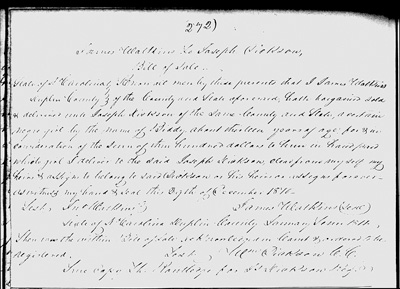 272)
James Watkins To Joseph Dickson,
Bill of Sale..
State of N Carolina Know all men by these presents that I James Watkins
Duplin County of the County and State aforesaid, hath bargained sold
& delivered unto Joseph Dickson of the Same County and State, a certain
negro girl by the name of about thirteen years of age for & in
consideration of the Sum of three hundred dollars to him in hand paid
which girl I deliver to the said Joseph Dickson, clear from my self my
heirs & assigns to belong to said Dickson or his heirs or assigns forever
as witness my hand & Seal this 29th of December 1810.
Test, James Watkins (Seal)
State of N Carolina Duplin County January Term 1811,
Then was the within Bill of Sale, acknowledged in Court & ordered to be
registered. Test. Wm Dickson C.C.
True Copy Th. Routledge for Dickson Reg.